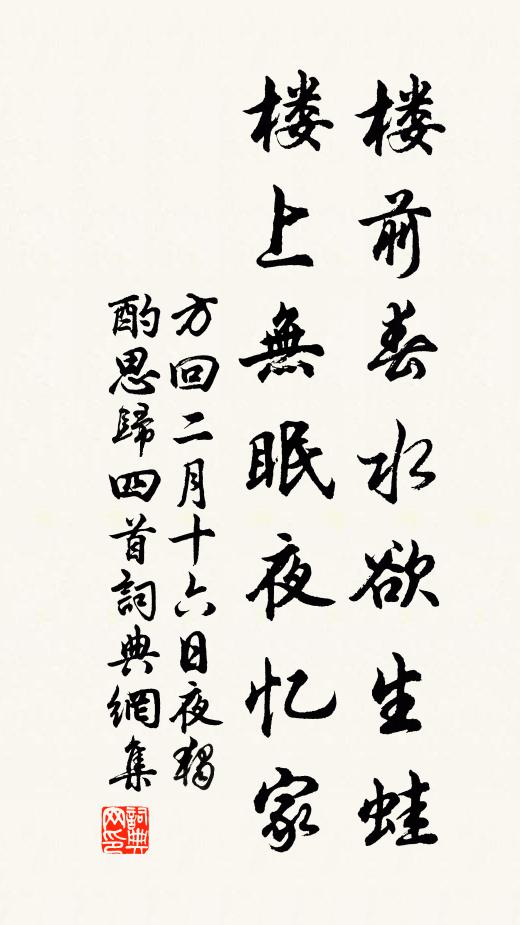 楼前春水欲生蛙
楼上無眠夜忆家
方回二月十六日夜獨
酌思歸四首詞典網集
詞典
网印